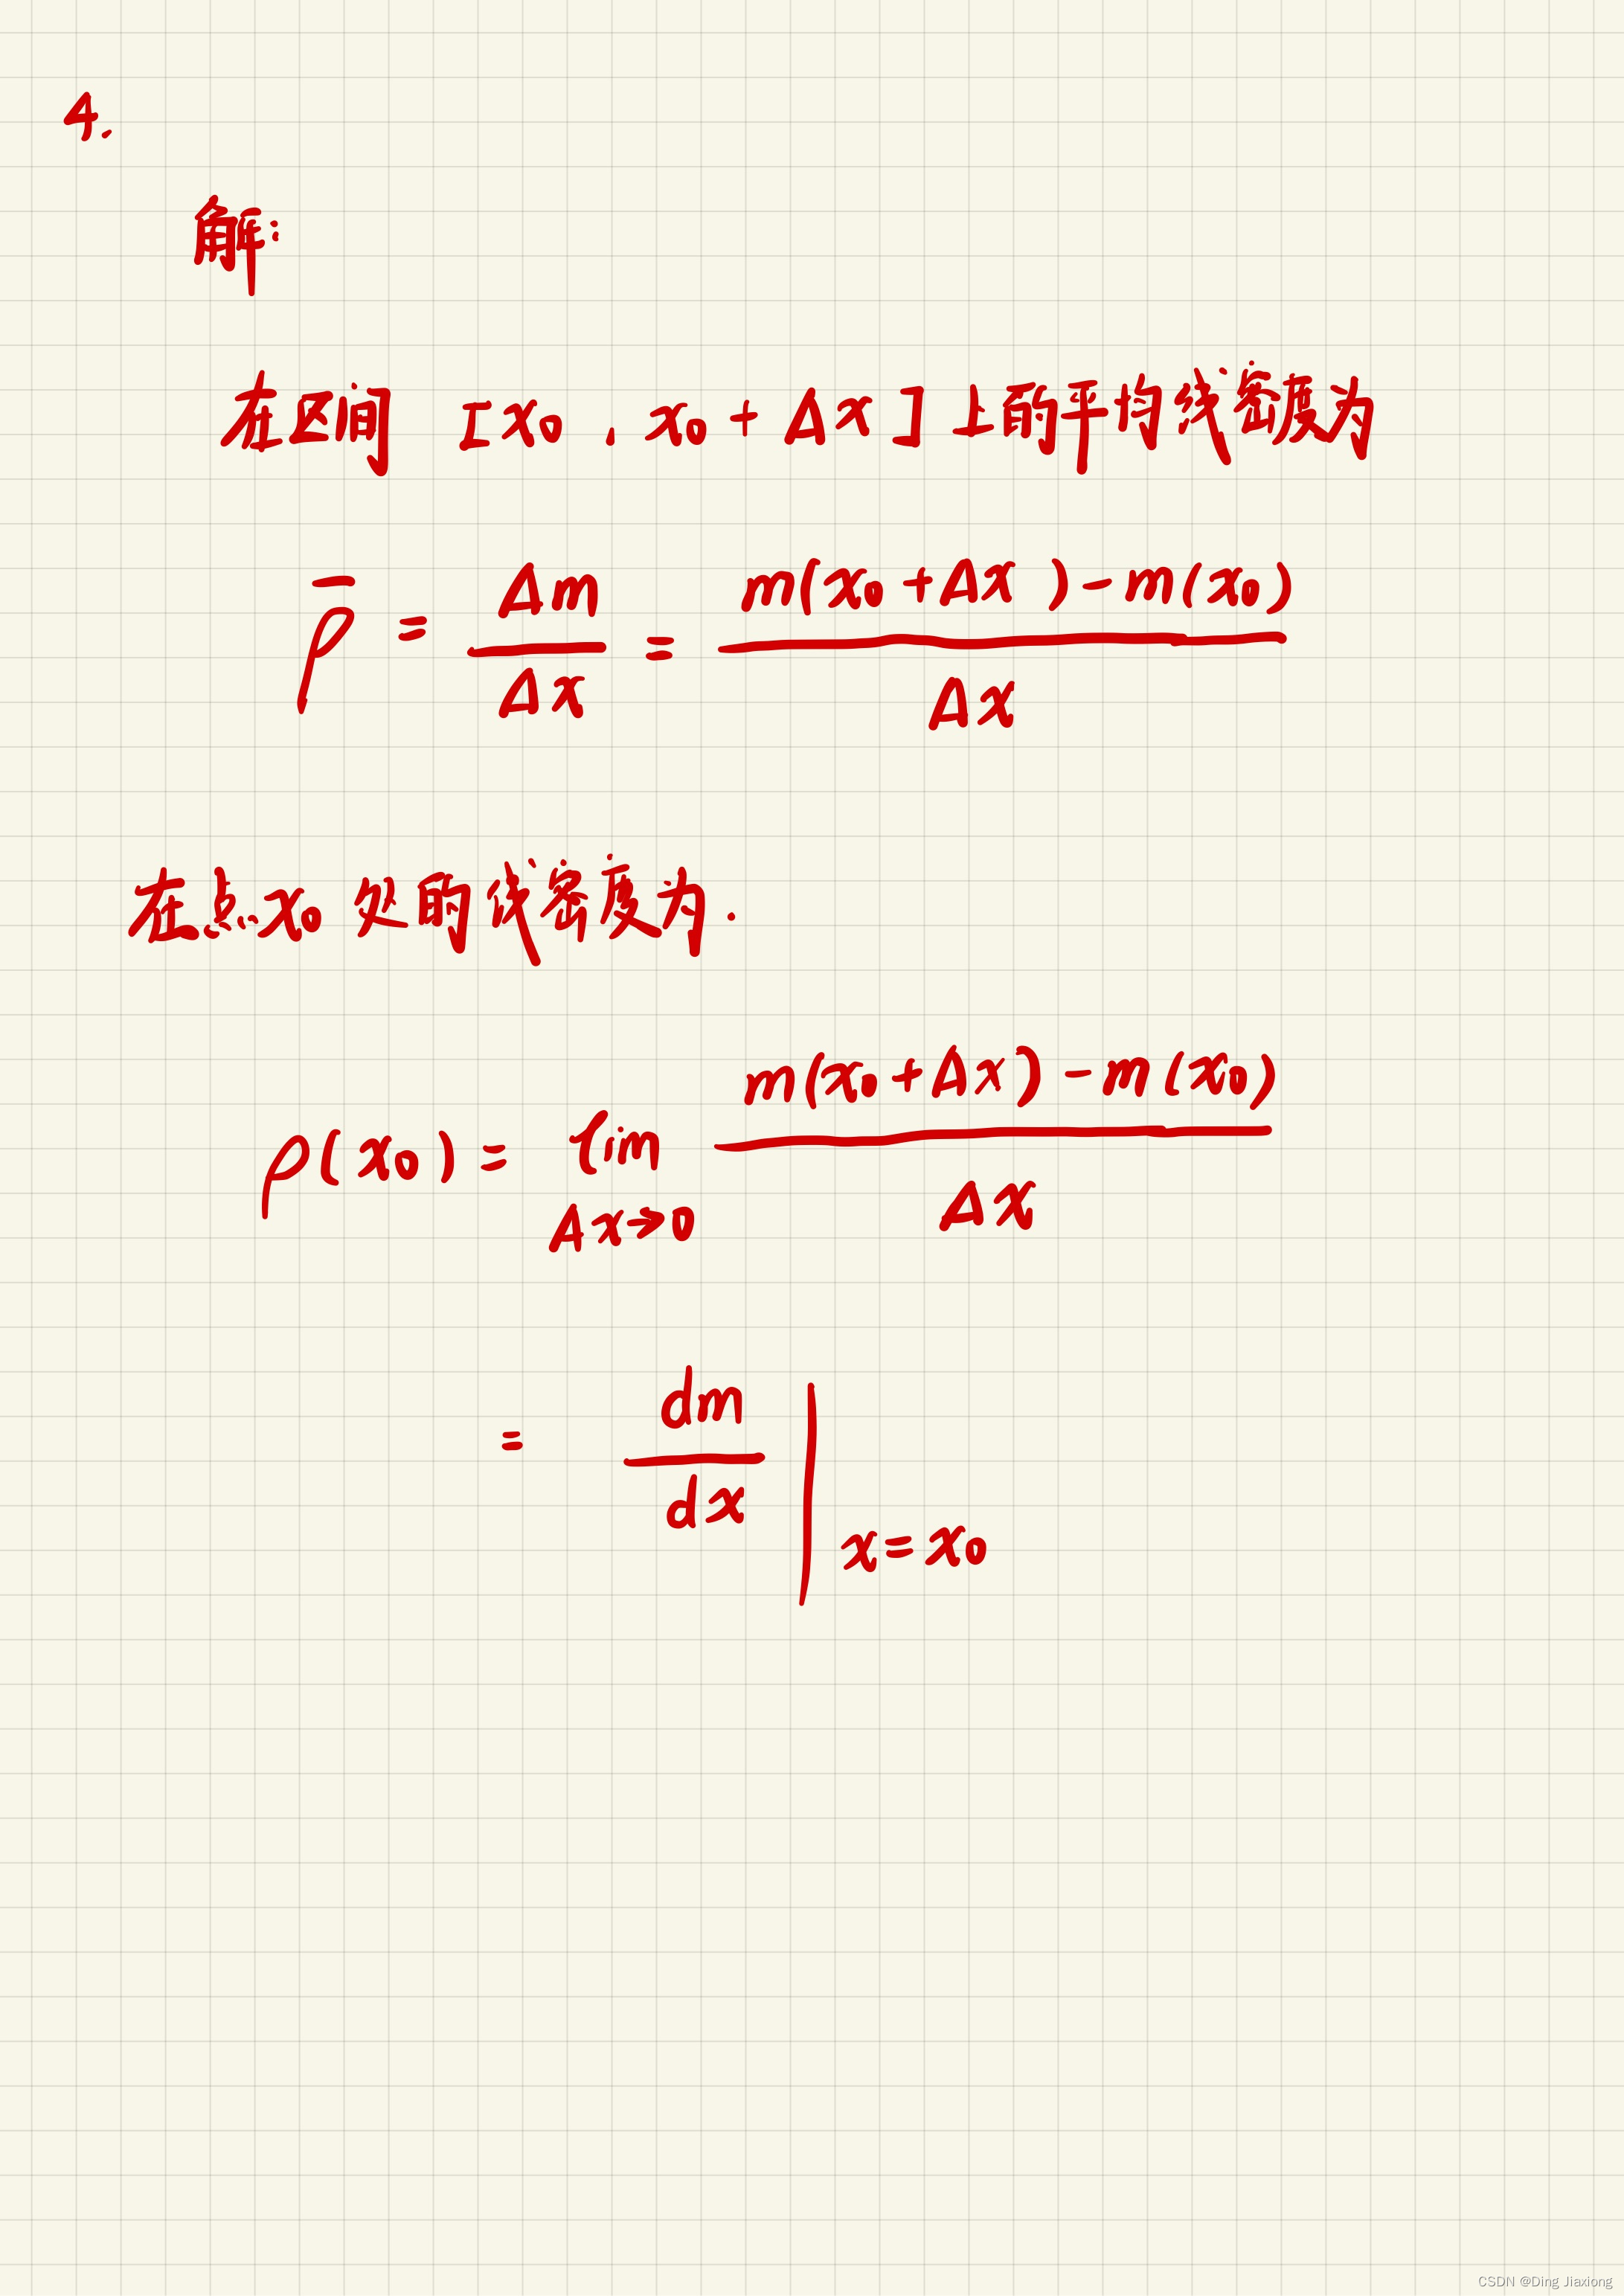 4.
解:
在区间 [x₀, x₀ + Δx] 上的平均线密度为
ρ̅ = Δm/Δx = (m(x₀ + Δx) - m(x₀))/Δx
在点 x₀ 处的线密度为.
ρ(x₀) = lim Δx→0 (m(x₀ + Δx) - m(x₀))/Δx
= dm/dx | x = x₀
CSDN @Ding Jiaxiong